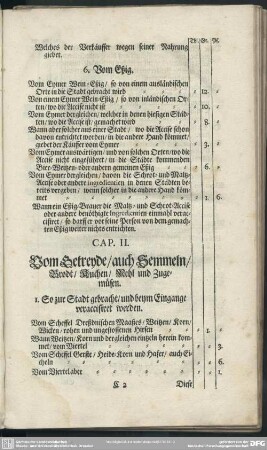 Thl. Gr. Pf.
Welches der Verkäuffer wegen seiner Nahrung
giebet.
6. Vom Eßig.
Vom Eymer Wein-Eßig/ so von einem ausländischen
Orte in die Stadt gebracht wird 12.
Von einem Eymer Wein-Eßig/ so von inländischen Or-
ten/ wo die Accise nicht ist 10.
Vom Eymer dergleichen/ welcher in denen hiesigen Städ-
ten/ wo die Accise ist/ gemachet wird 8.
Wann aber solcher aus einer Stadt/ wo die Accise schon
davon entrichtet worden/ in die andere Hand kömmet/
giebet der Käuffer vom Eymer 3.
Vom Eymer auswärtigen/ und von solchen Orten/ wo die
Accise nicht eingeführet/ in die Städte kommenden
Bier-Weitzen- oder andern gemeinen Eßig 6.
Vom Eymer dergleichen/ davon die Schrot- und Maltz-
Accise oder andere ingredientien in denen Städten be-
reits vergeben/ wenn solcher in die andere Hand köm-
met 1. 6.
Wann ein Eßig-Brauer die Maltz- und Schrot-Accise
oder andere benöthigte Ingredientien einmahl verac-
cisiret/ so darff er vor seine Person von dem gemach-
ten Eßig weiter nichts entrichten.
CAP. II.
Vom Getreyde/ auch Semmeln/
Brodt/ Kuchen/ Mehl und Zuge-
müsen.
1. So zur Stadt gebracht/ und beym Eingange
veraccisiret werden.
Vom Scheffel Dreßdnischen Maaßes/ Weitzen/ Korn/
Wicken/ rohen und ungestossenen Hirsen 1.
Wann Weitzen/ Korn und dergleichen eintzeln herein kom-
met/ vom Viertel 3.
Vom Scheffel Gerste/ Heide-Korn und Hafer/ auch Ei-
cheln 6.
Vom Viertel aber 1.
C 2 Diese